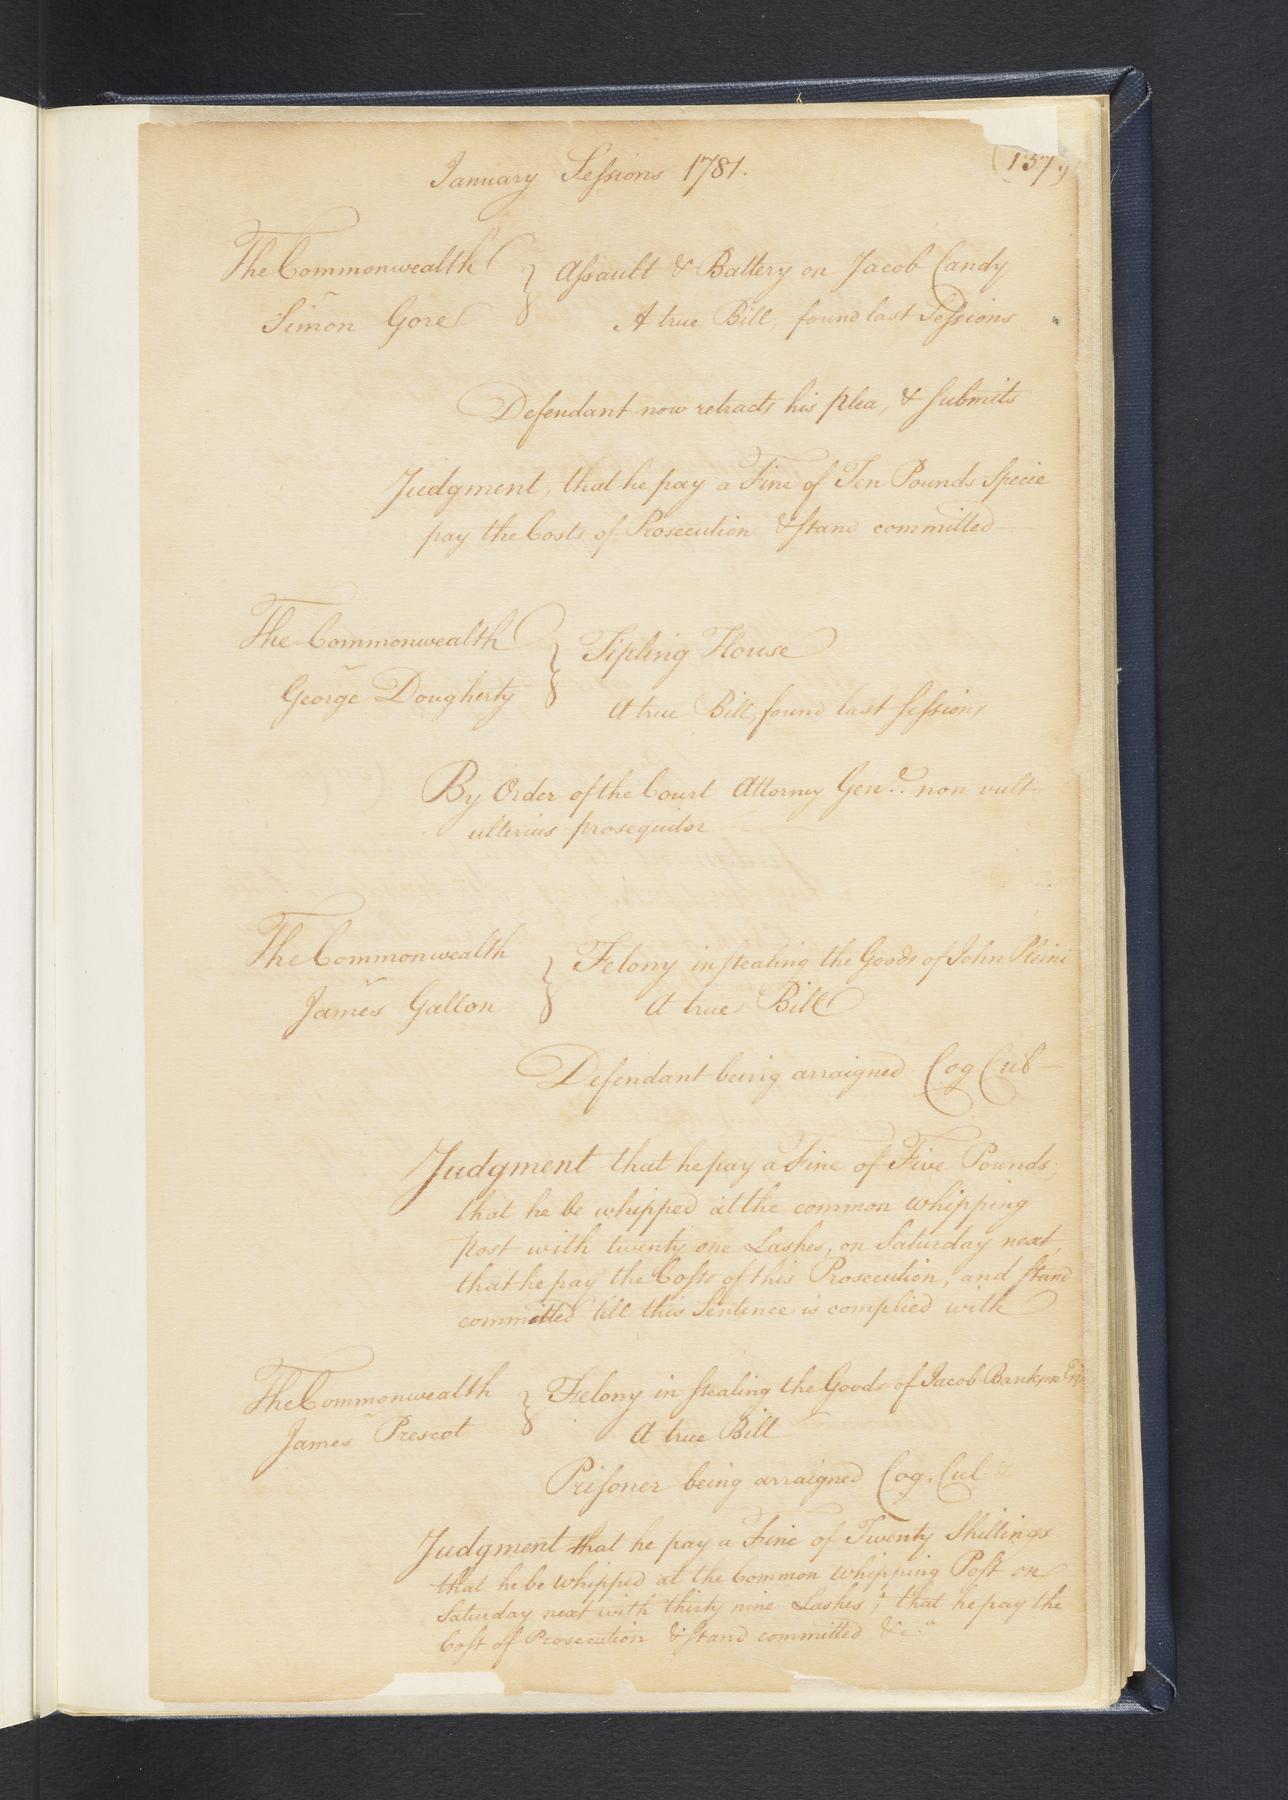 January Sessions 1781.
(137.)
The Commonwealth } Assault & Battery on Jacob Candy
Simon Gore A true Bill, found last Sessions
Defendant now retracts his plea, & submits
Judgment, that he pay a Fine of Ten Pounds Specie
pay the Costs of Prosecution & stand committed
The Commonwealth } Tipling House
George Dougherty A true Bill, found last Sessions
By Order of the Court Attorney Genl. non vult
ulterius prosequitor
The Commonwealth } Felony in stealing the Goods of John
James Gallon A true Bill
Defendant being arraigned Cog Cul
Judgment that he pay a Fine of Five Pounds,
that he be whipped at the common whipping
post with twenty one Lashes, on Saturday next,
that he pay the Costs of this Prosecution, and stand
committed till this Sentence is complied with
The Commonwealth } Felony in stealing the Goods of Jacob Bankson Esqr
James Prescot A true Bill
Prisoner being arraigned Cog. Cul
Judgment that he pay a Fine of Twenty Shillings
that he be whipped at the Common whipping Post on
Saturday next with thirty nine Lashes; that he pay the
Cost of Prosecution & stand committed &c.a